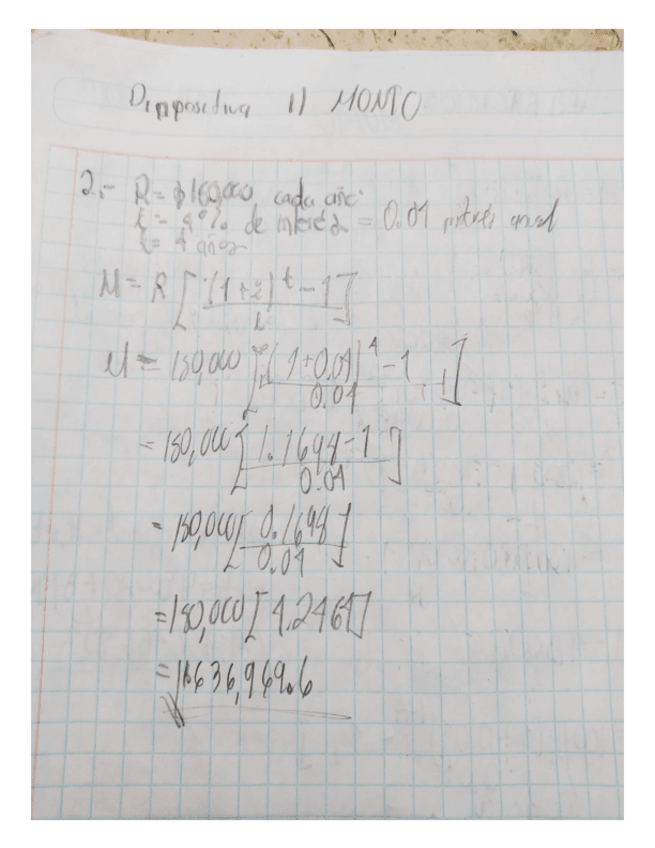 Diapositiva 11 MONTO
2.- R= $150,000 cada año
i= 4% de interés = 0.04 interés anual
t= 4 años
M = R [ (1+i)^t - 1 / i ]
M = 150,000 [ (1+0.04)^4 - 1 / 0.04 ]
= 150,000 [ 1.1698-1 / 0.04 ]
= 150,000 [ 0.1698 / 0.04 ]
= 150,000 [ 4.2464 ]
= $636,969.6